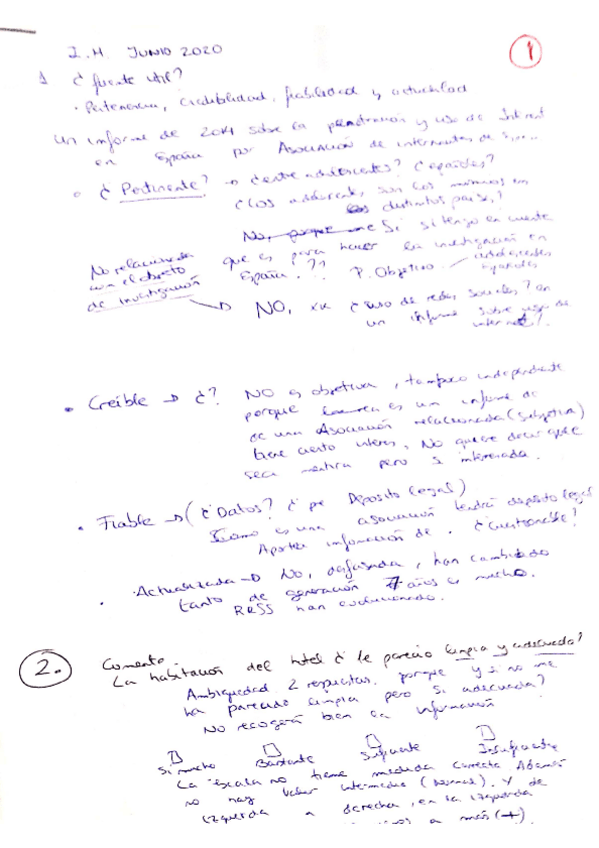 I.M. JUNIO 2020
1
1 ¿fuente util?
· Pertenencia, credibilidad, fiabilidad y actualidad
Un informe de 2014 sobre la penetración y uso de Internet
en España por Asociación de internautas de
• ¿Pertinente? → ¿entre adolescentes? ¿españoles?
¿los adolescent, son los mismos en
los distintos países?
No, porque me Si si tengo en cuenta
que es para hacer la investigación en
España.
P. Objetivo adolescentes españoles
No relacionada
con el objeto
de investigación
→ NO, xk ¿uso de redes sociales? en
un informe sobre uso de
internet?
• Creíble → ¿? NO es objetiva, tampoco independiente
porque es un informe de
de una Asociación relacionada (subjetiva)
tiene cierto interes, No quiere decir que
sea mentira pero si interesada.
• Fiable → (¿Datos? ¿ Deposito Legal)
Como es una asociación tendrá depósito legal
Aporta información de . ¿Cuestionable?
• Actualizada → No, desfasada, han cambiado
tanto de generación 7 años es mucho.
RRSS han evolucionado.
2. Comento
La habitación del hotel ¿le pareció limpia y adecuada?
Ambiguedad 2 respuestas. porque y si no me
ha parecido limpia pero si adecuada?
No recogerá bien la información
Si mucho Bastante Suficiente Insuficiente
La escala no tiene medida correcta Además
no hay valor intermedio (Normal). Y de
izquierda a derecha, en la izquierda
a más (+)